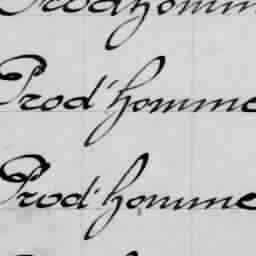 Prodhomme
Prod'homme
Prod'homme